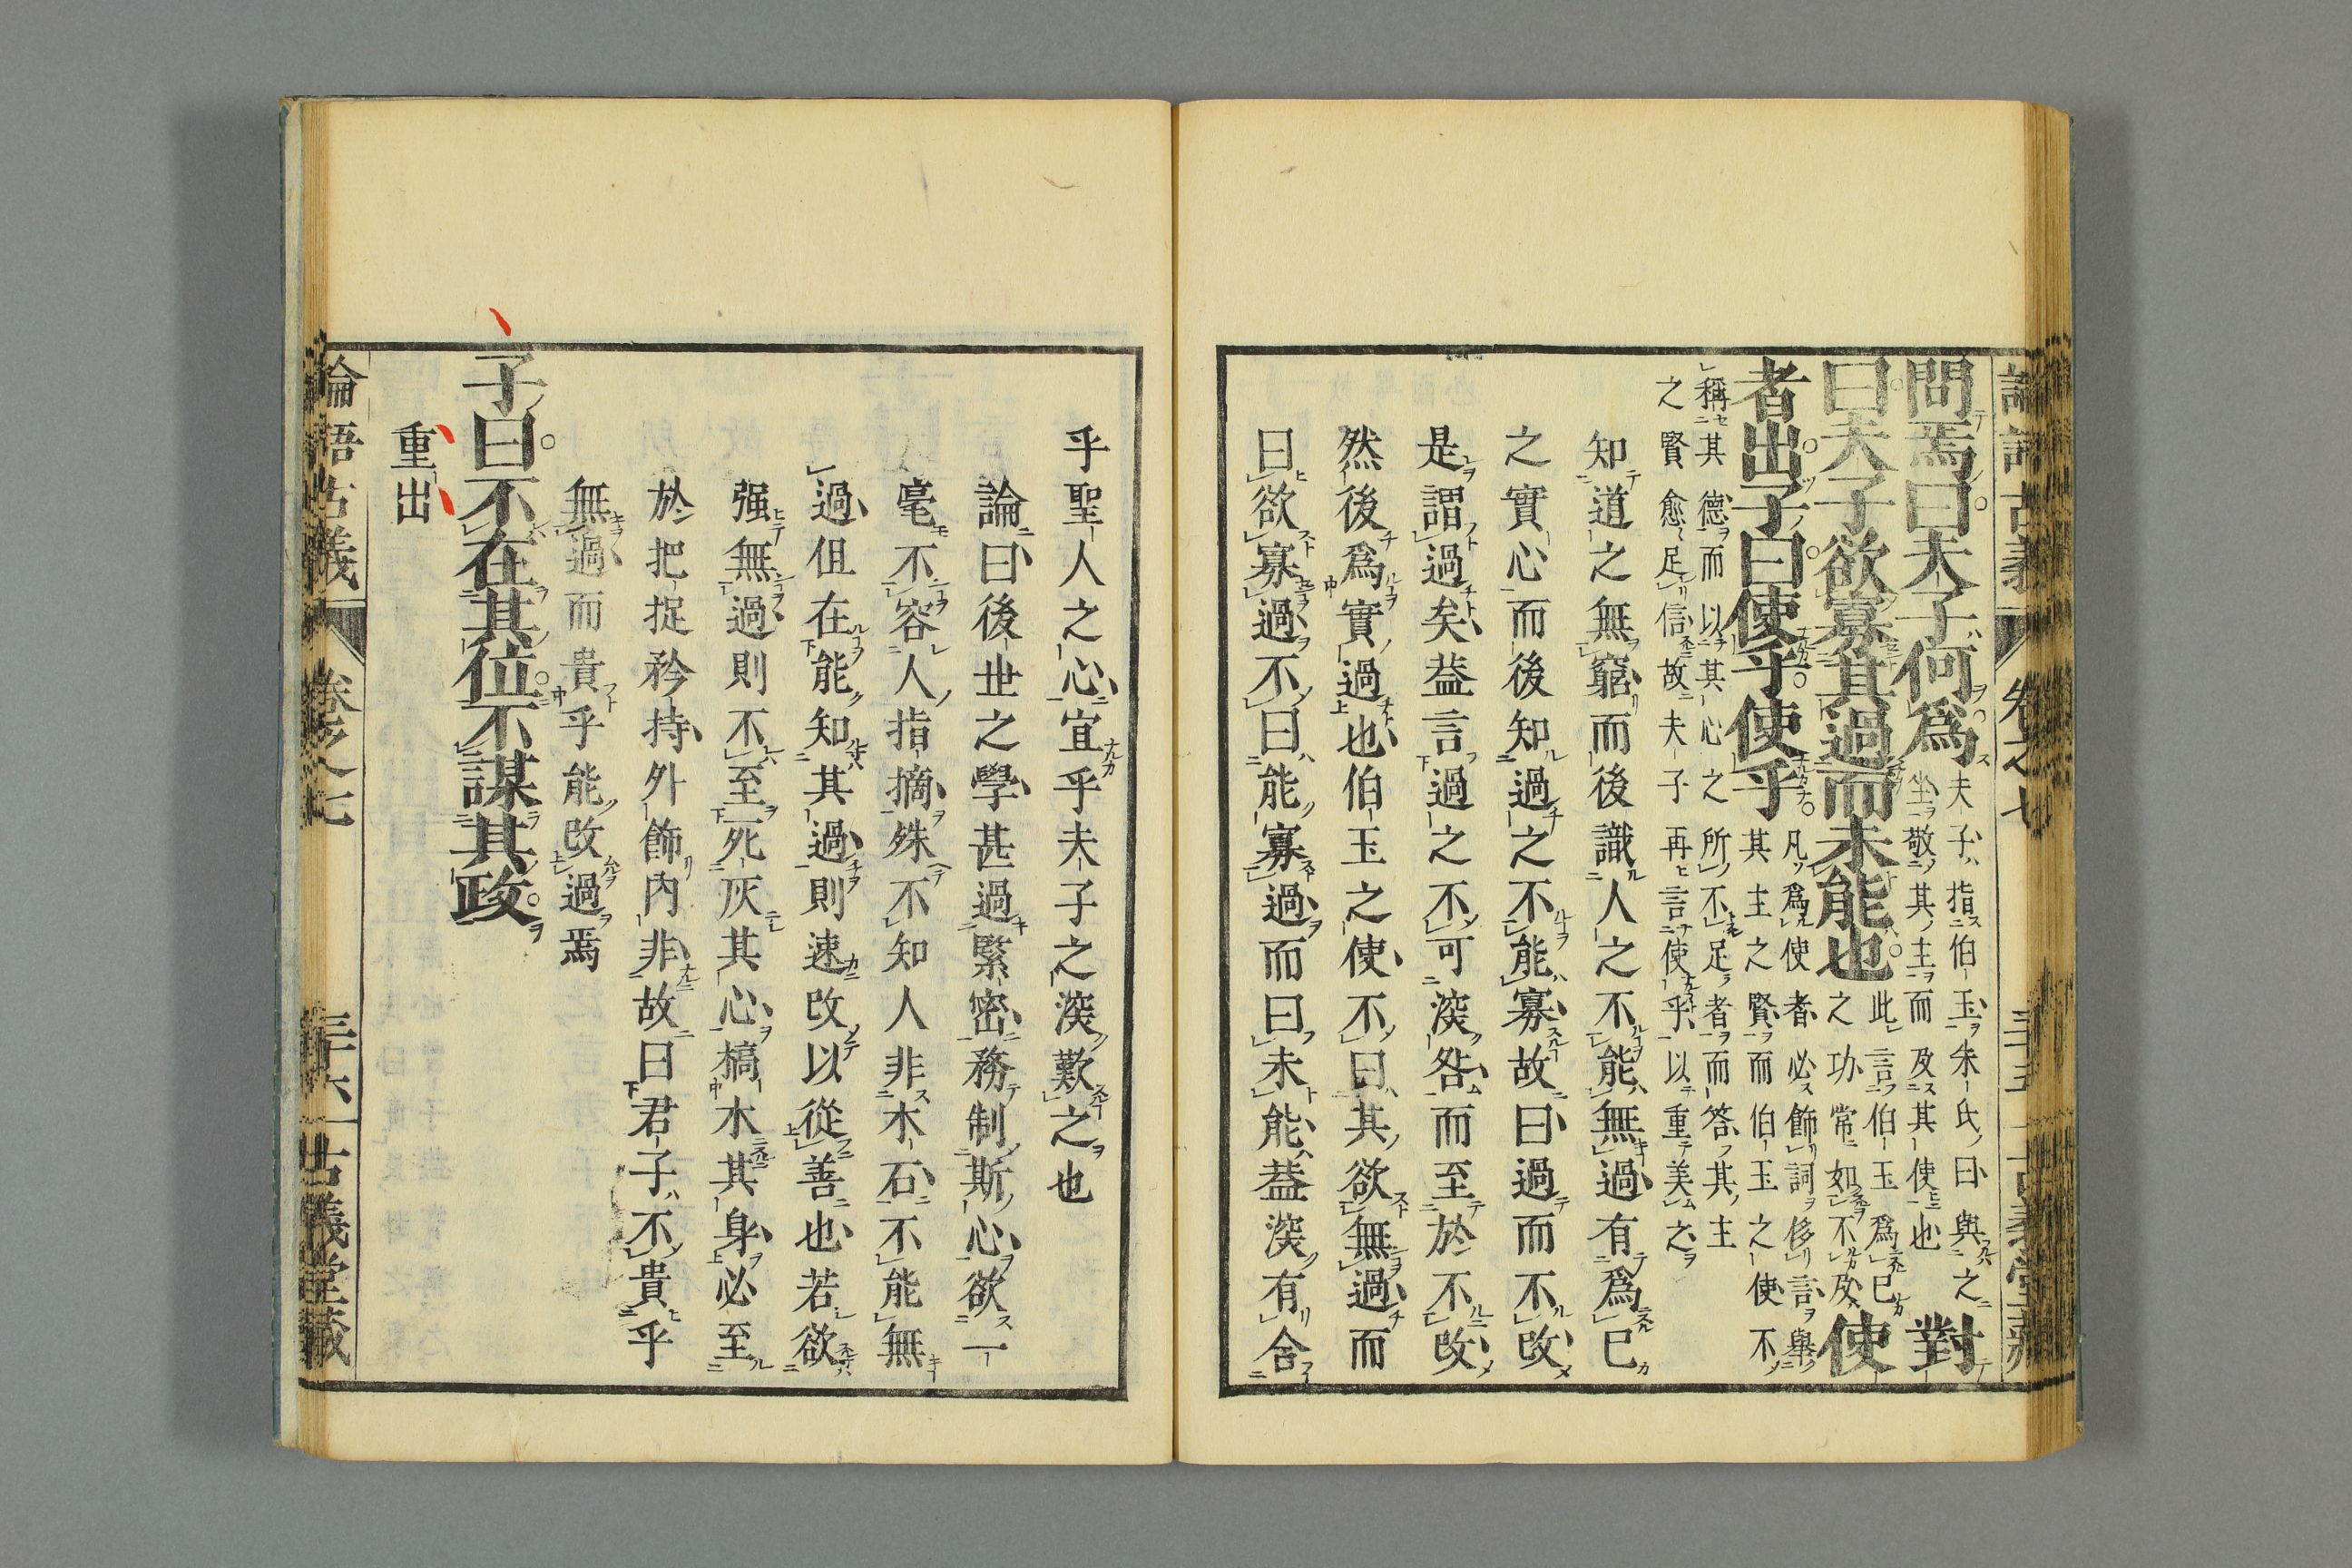 論語古義 卷之七 三十五 古義堂藏
問焉曰夫子何爲
夫子指伯玉朱氏曰與之
坐敬其主而及其使也
對
曰夫子欲寡其過而未能也
此言伯玉爲己
之功常如不及
使
者出子曰使乎使乎
凡爲使者必飾詞侈言舉
其主之賢而伯玉之使不
稱其德而以其心之所不足者而答其主
之賢愈足信故夫子再言使乎以重美之
知道之無窮而後識人之不能無過有爲己
之實心而後知過之不能寡故曰過而不改
是謂過矣蓋言過之不可深咎而至於不改
然後爲實過也伯玉之使不曰其欲無過而
曰欲寡過不曰能寡過而曰未能蓋深有合
乎聖人之心宜乎夫子之深歎之也
論曰後世之學甚過緊密務制斯心欲一
毫不容人指摘殊不知人非木石不能無
過但在能知其過則速改以從善也若欲
强無過則不至死灰其心槁木其身必至
於把捉矜持外飾內非故曰君子不貴乎
無過而貴乎能改過焉
子曰不在其位不謀其政
重出
論語古義 卷之七 三十六 古義堂藏